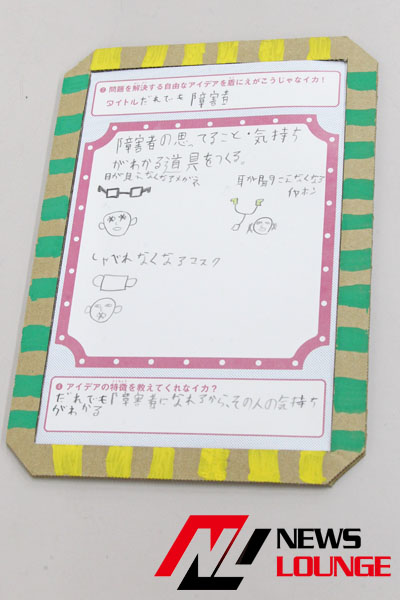 ❸ 問題を解決する自由なアイデアを盾にえがこうじゃなイカ！
タイトル だれでも障害者
障害者の思ってること・気持ち
がわかる道具をつくる。
目が見えなくなるメガネ
耳が聞こえなくなる
イヤホン
しゃべれなくなるマスク
❹ アイデアの特徴を教えてくれなイカ？
だれでも障害者になれるから、その人の気持ち
がわかる
NEWS
LOUNGE